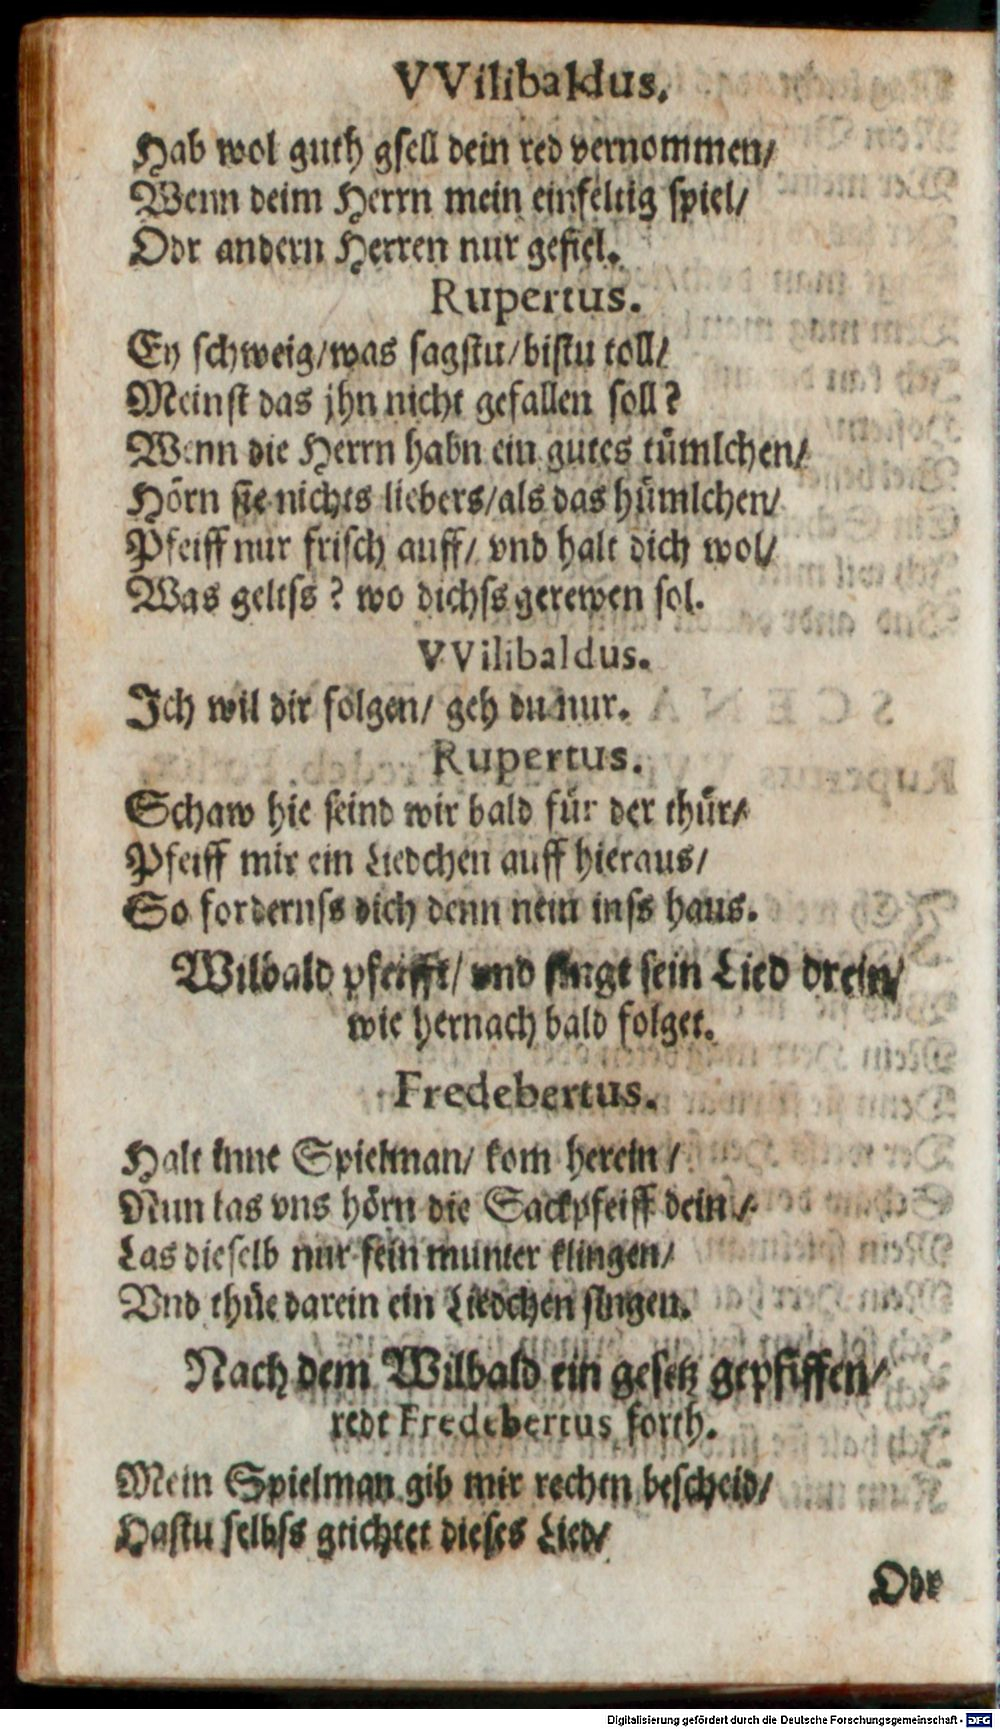 VVilibaldus.
Hab wol guth gsell dein red vernommen/
Wenn deim Herrn mein einfeltig spiel/
Odr andern Herren nur gefiel.
Rupertus.
Ey schweig/was sagstu/bistu toll/
Meinst das jhn nicht gefallen soll?
Wenn die Herrn habn ein gutes tümlchen/
Hörn sie nichts liebers/als das hümlchen/
Pfeiff nur frisch auff/ vnd halt dich wol/
Was geltss? wo dichss gerewen sol.
VVilibaldus.
Ich wil dir folgen/ geh du nur.
Rupertus.
Schaw hie seind wir bald für der thür/
Pfeiff mir ein Liedchen auff hieraus/
So fordernss dich denn nein inss haus.
Wilbald pfeifft/ vnd singt sein Lied drein/
wie hernach bald folget.
Fredebertus.
Halt inne Spielman/ kom herein/
Nun las vns hörn die Sackpfeiff dein/
Las dieselb nur fein munter klingen/
Vnd thüe darein ein Liedchen singen.
Nach dem Wilbald ein gesetz gepfiffen/
redt Fredebertus forth.
Mein Spielman gib mir rechen bescheid/
Hastu selbss gtichtet dieses Lied/
Odr
Digitalisierung gefördert durch die Deutsche Forschungsgemeinschaft - DFG